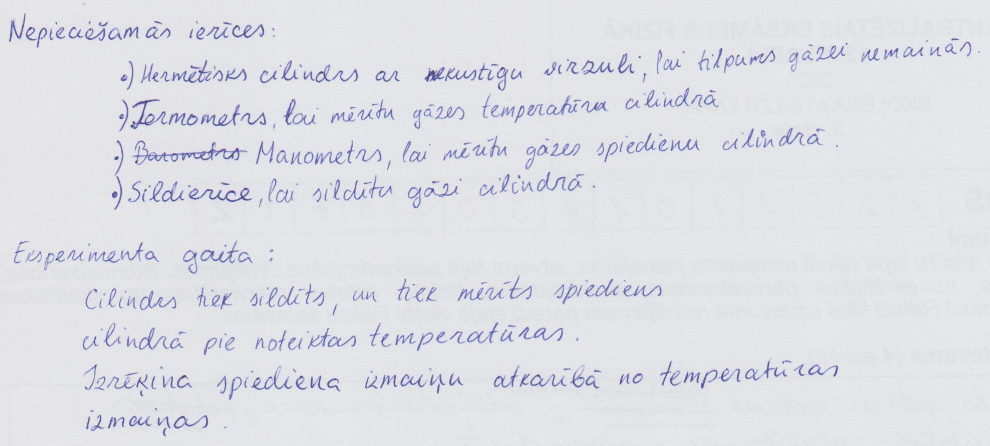 Nepieciešamās ierīces:
•) Hermētisks cilindrs ar nekustīgu virzuli, lai tilpums gāzei nemainās.
•) Termometrs, lai mērītu gāzes temperatūru cilindrā
•) Barometrs Manometrs, lai mērītu gāzes spiedienu cilindrā.
•) Sildierīce, lai sildītu gāzi cilindrā.
Eksperimenta gaita:
Cilindrs tiek sildīts, un tiek mērīts spiediens
cilindrā pie noteiktas temperatūras.
Izrēķina spiediena izmaiņu atkarībā no temperatūras
izmaiņas.